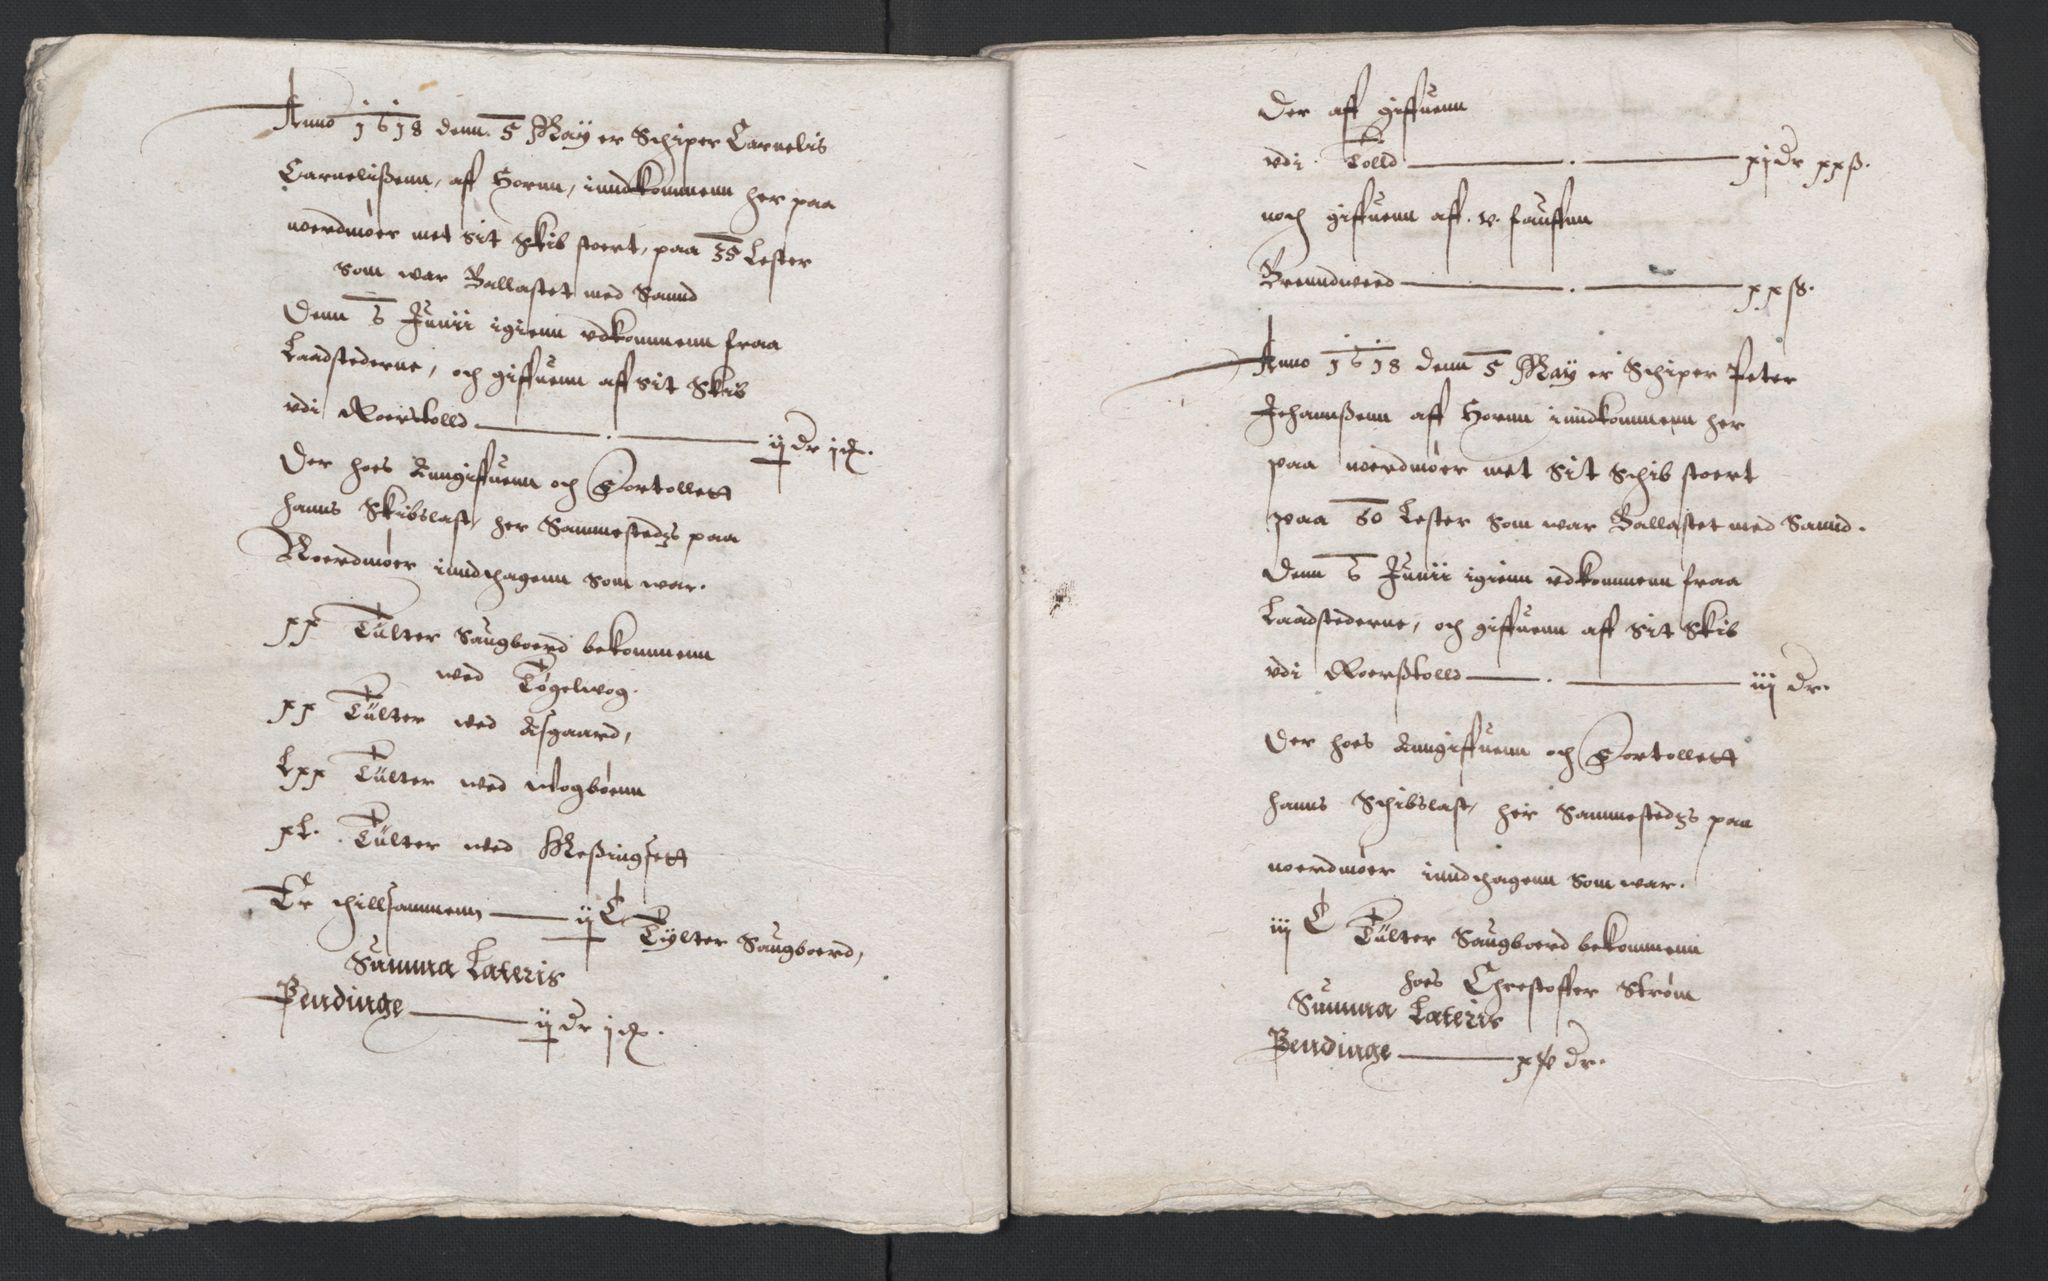 Anno 1618 denn 5 Maÿ er Schiper Carnelis
Carnelißenn, aff Hornn, inndkommenn her paa
noerdmøer met sit Skib stoert, paa 35 Lester
som war Ballastet med Sannd
Denn 6 Junii igienn vdkommenn fraa
Laadstederne, och giffuenn aff sit Skib
vdi Roerstolld — ij dr j
Der hoes Anngiffuenn och Fortollett
hanns Skibslast, her Sammesteds paa
Noerdmøer inndthagenn som war.
xx Tülter Saugboerd bekommenn
wed Tøgelwog.
xx Tülter wed Asgaard,
Lxx Tülter wed Wogbøenn
xL. Tülter wed Meßingsett
Er thillsammenn — ij C Tÿlter Saugboerd,
Summa Lateris
Pendinge — ij dr j
Der aff giffuenn
vdi Tolld — xj dr xx ß.
noch giffuenn aff. v. fauffnn
Brenndweed — xx ß.
Anno 1618 denn 5 Maÿ er Schiper Peter
Johannßenn aff Hornn inndkommenn her
paa noerdmøer met sit Schib stoert
paa 60 Lester som war Ballastet med Sannd.
Denn 6 Junii igienn vdkommenn fraa
Laadstederne, och giffuenn aff sit Skib
vdi Roerßtolld — iij dr.
Der hoes Anngiffuenn och Fortollett
hanns Schibslast, her Sammesteds paa
noerdmøer inndthagenn som war.
iij C Tülter Saugboerd bekommenn
hoes Christoffer Strøm
Summa Lateris
Pendinge — dr.